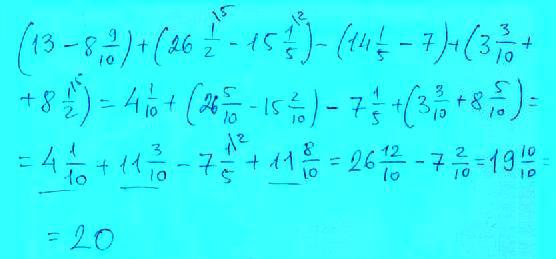 (13 - 8 9/10) + (26 1/2 \5 - 15 1/5 \2) - (14 1/5 - 7) + (3 3/10 +
+ 8 1/2 \5) = 4 1/10 + (26 5/10 - 15 2/10) - 7 1/5 + (3 3/10 + 8 5/10) =
= 4 1/10 + 11 3/10 - 7 1/5 \2 + 11 8/10 = 26 12/10 - 7 2/10 = 19 10/10 =
= 20